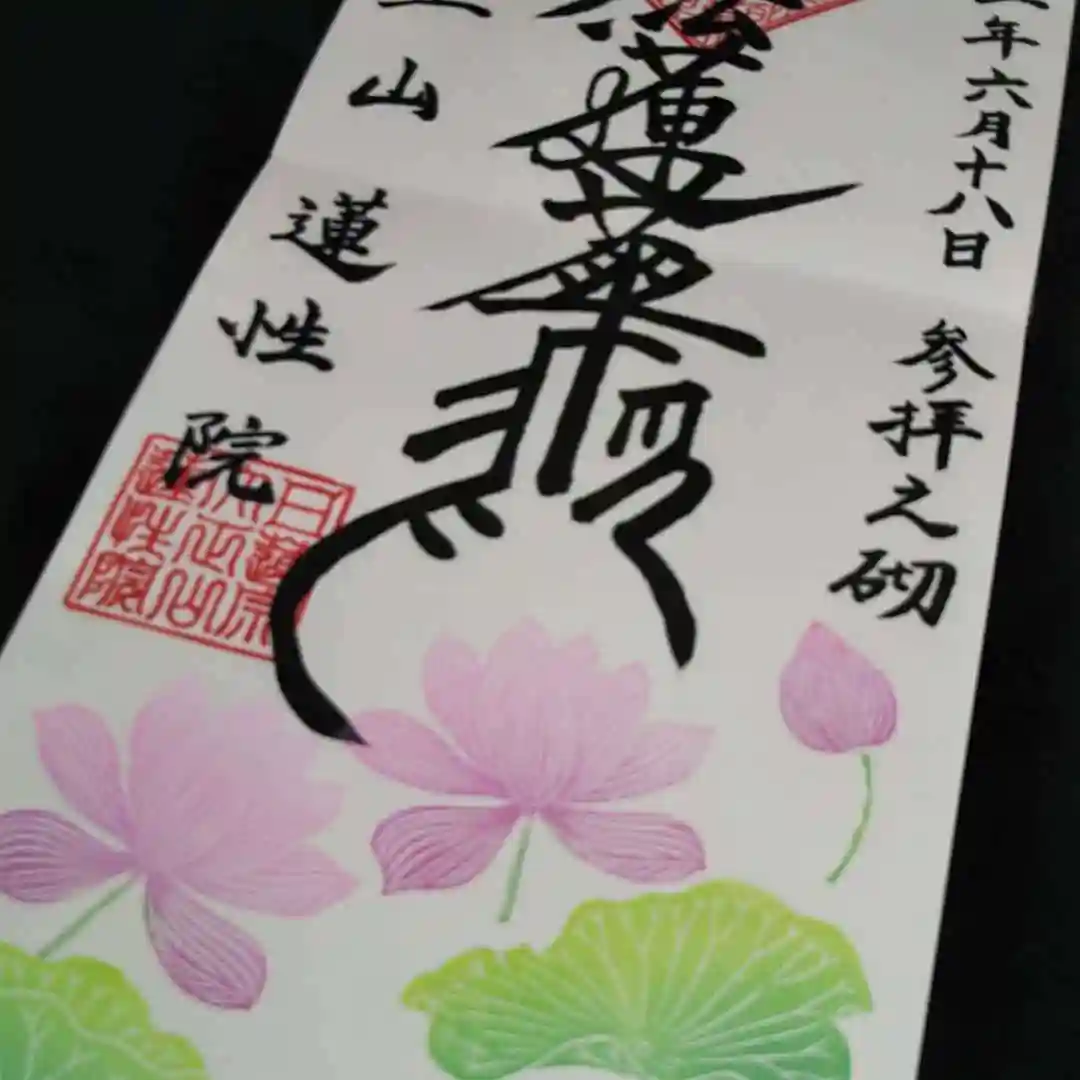 年六月十八日 参拝之砌
法蓮華経
山 蓮性院
日蓮宗
蓮性院